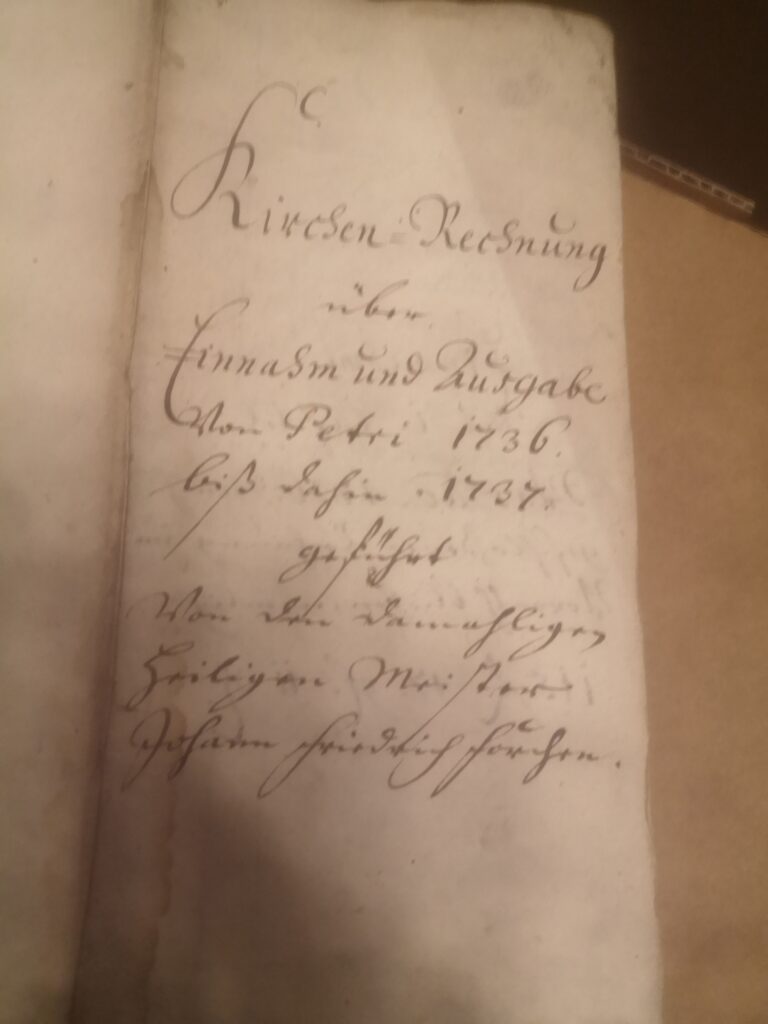 Kirchen-Rechnung
über
Einnahm und Ausgabe
Von Petri 1736.
biß dahin 1737.
geführt
Von den damahligen
Heiligen Meister
Johann Friedrich